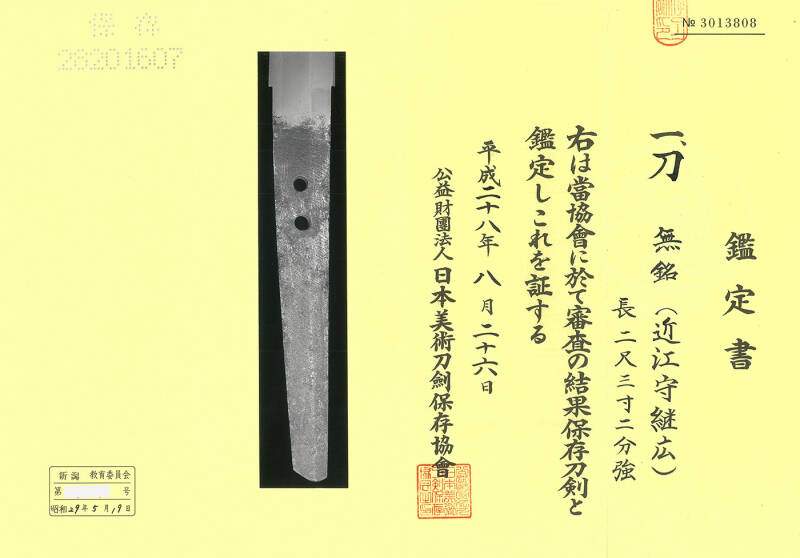 № 3013808
鑑定書
一、刀 無銘(近江守継広)
長 二尺三寸二分強
右は當協會に於て審査の結果保存刀剣と
鑑定しこれを証する
平成二十八年 八月 二十六日
公益財團法人 日本美術刀劍保存協會
保存
28201607
新潟 教育委員会
第 号
昭和29年5月19日